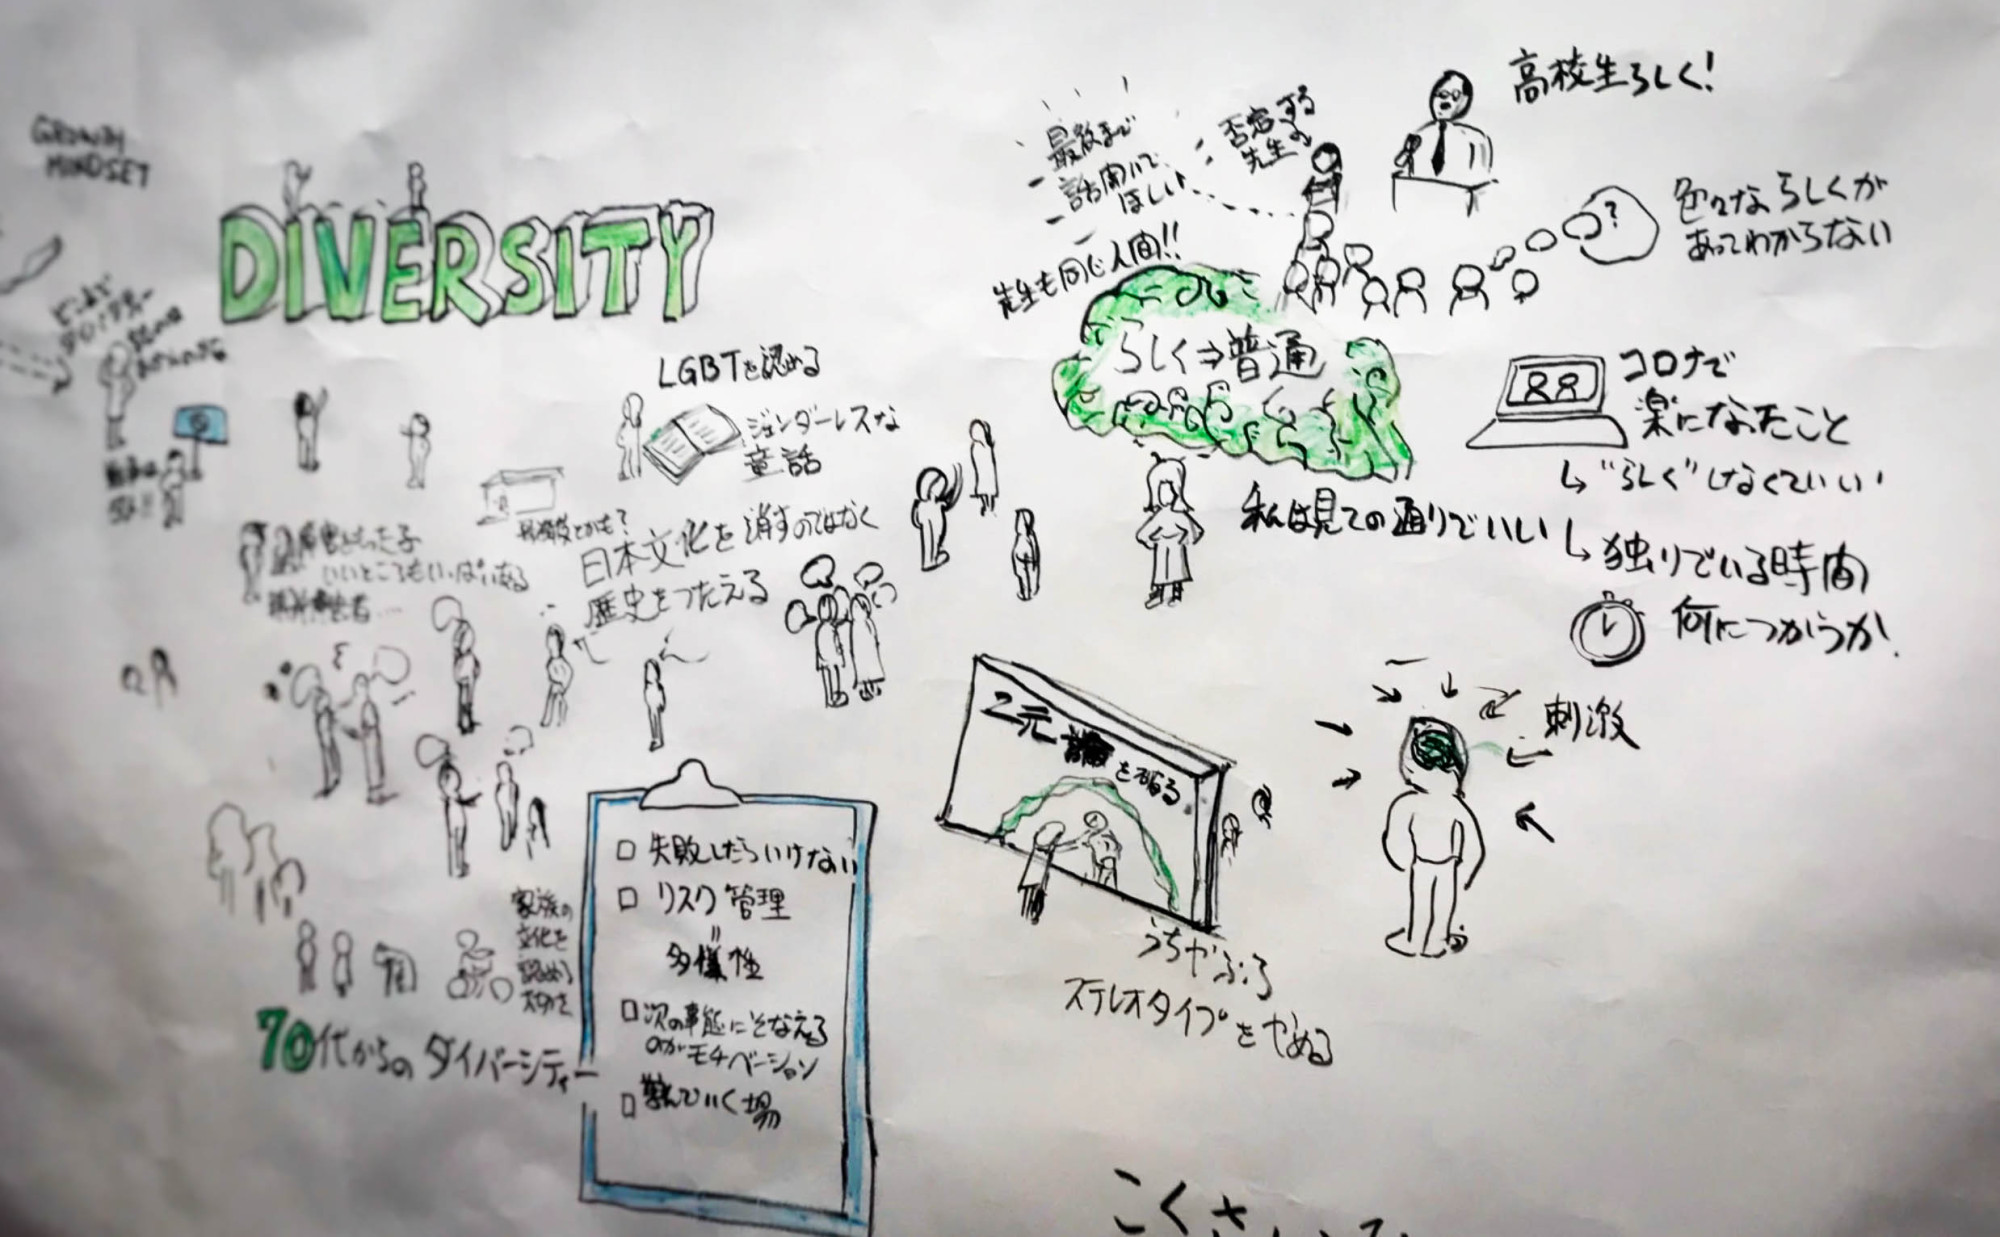 GROWTH
MINDSET
DIVERSITY
LGBTを認める
ジェンダーレスな
童話
日本文化を消すのではなく
歴史をつたえる
いいところもいっぱいある
家族の
文化を
70代からのダイバーシティー
□ 失敗したらいけない
□ リスク管理
=
多様性
□ 次の事態にそなえる
のがモチベーション
□ 学んでいく場
最後まで
話聞いて
ほしい
否定する
先生の
先生も同じ人間!!
高校生らしく!
色々ならしくが
あってわからない
らしく⇒普通
私は見ての通りでいい
コロナで
楽になったこと
↳"らしく"しなくていい
↳独りでいる時間
何につかうか
2元論を破る
うちやぶる
ステレオタイプをやめる
刺激